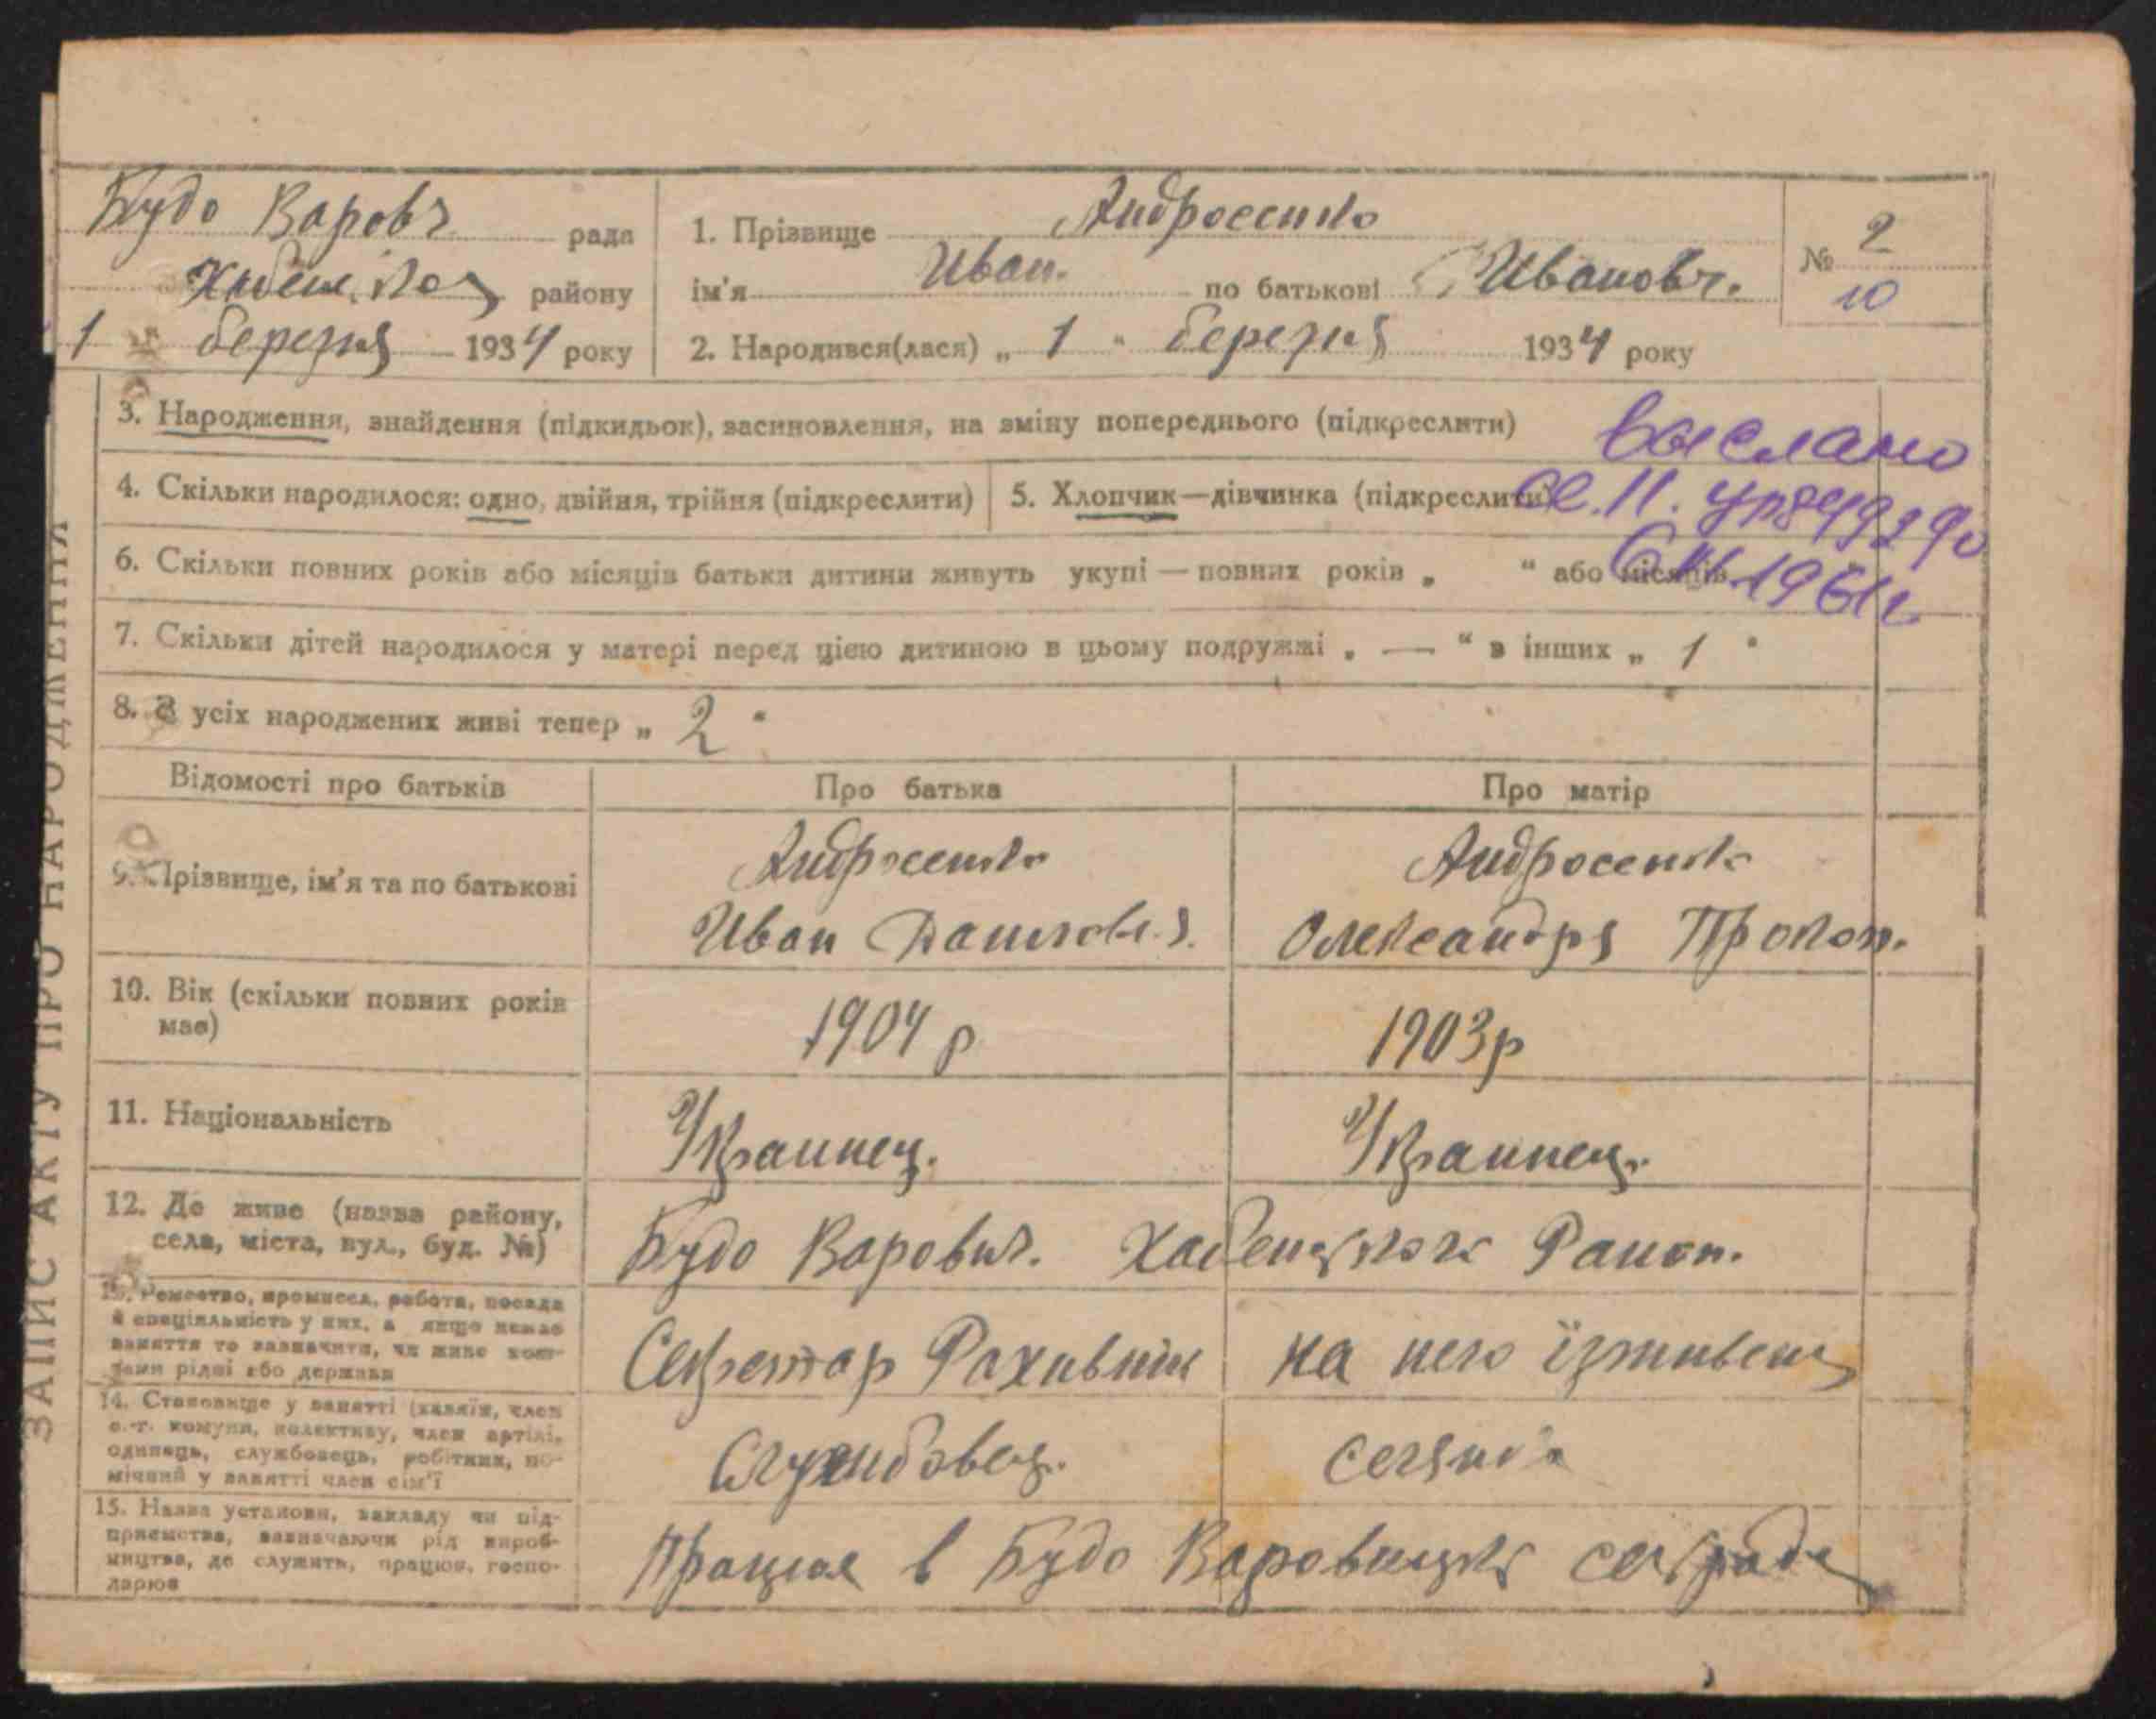 ЗАПИС АКТУ ПРО НАРОДЖЕННЯ
Будо Варовч рада
району
1 березня 1934 року
1. Прізвище Андросенко
ім'я Иван. по батькові Ивановч.
№ 2
10
2. Народився(лася) „ 1 “ березня 1934 року
3. Народження, знайдення (підкидьок), засиновлення, на зміну попереднього (підкреслити)
выслано
4. Скільки народилося: одно, двійня, трійня (підкреслити)
5. Хлопчик—дівчинка (підкреслити)
св. II.
6. Скільки повних років або місяців батьки дитини живуть укупі — повних років „ “ або місяців
1961г.
7. Скільки дітей народилося у матері перед цією дитиною в цьому подружжі „ — “ в інших „ 1 “
8. З усіх народжених живі тепер „ 2 “
Відомості про батьків
Про батька
Про матір
9. Прізвище, ім'я та по батькові
Андросенко
Иван
Андросенко
Олександра Прокоп.
10. Вік (скільки повних років має)
1904 р
1903р
11. Національність
Украинец.
Украинец.
12. Де живе (назва району, села, міста, вул., буд. №)
Будо Варович. Раион.
13. Ремество, промисел, робота, посада й спеціяльність у них, а якщо немає заняття то зазначити, чи живе коштами рідні або держави
Секретар Рахивник
на него
14. Становище у занятті (хазяїн, член с.-г. комуни, колективу, член артілі, одинець, службовець, робітник, помічний у занятті член сім'ї
Службовец.
15. Назва установи, закладу чи підприємства, зазначаючи рід виробництва, де служить, працює, господарює
Працює в Будо сельраде